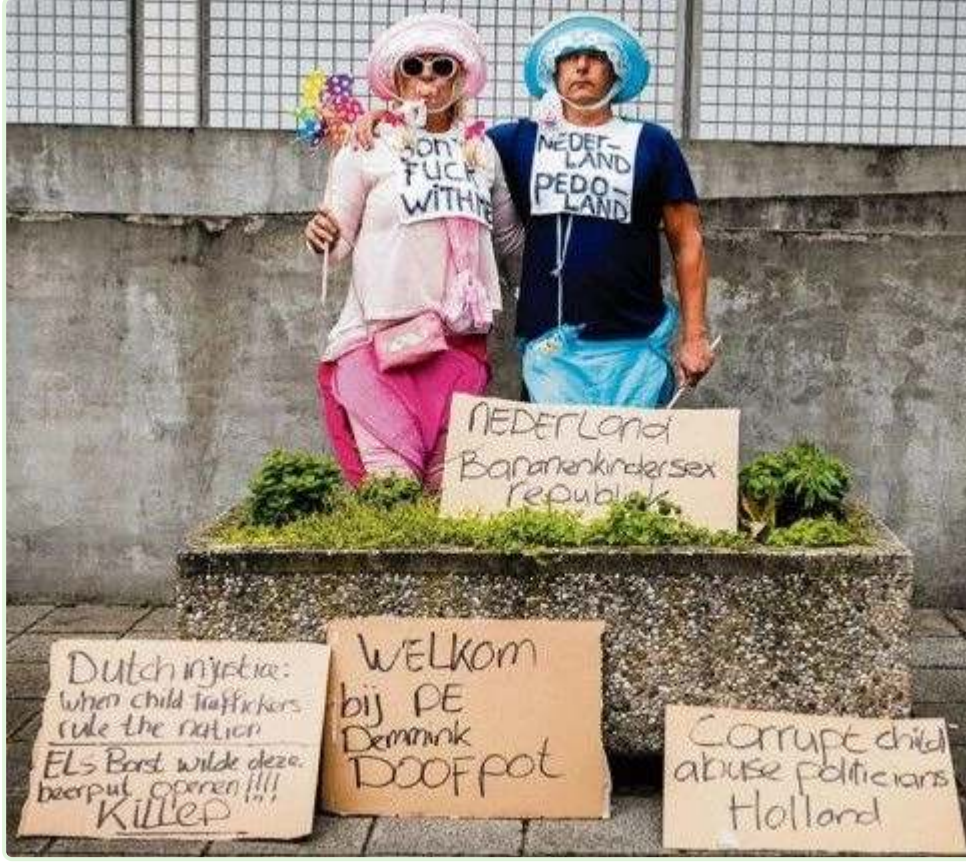 DON'T
FUCK
WITH ME
NEDER-
LAND
PEDO-
LAND
NEDERLAND
Bananenkindersex
republiek
Dutch injustice:
when child traffickers
rule the nation
ELS Borst wilde deze
beerput openen!!!
KiLLED
WELKOM
bij DE
Demmink
DOOFpot
Corrupt child
abuse politicians
Holland